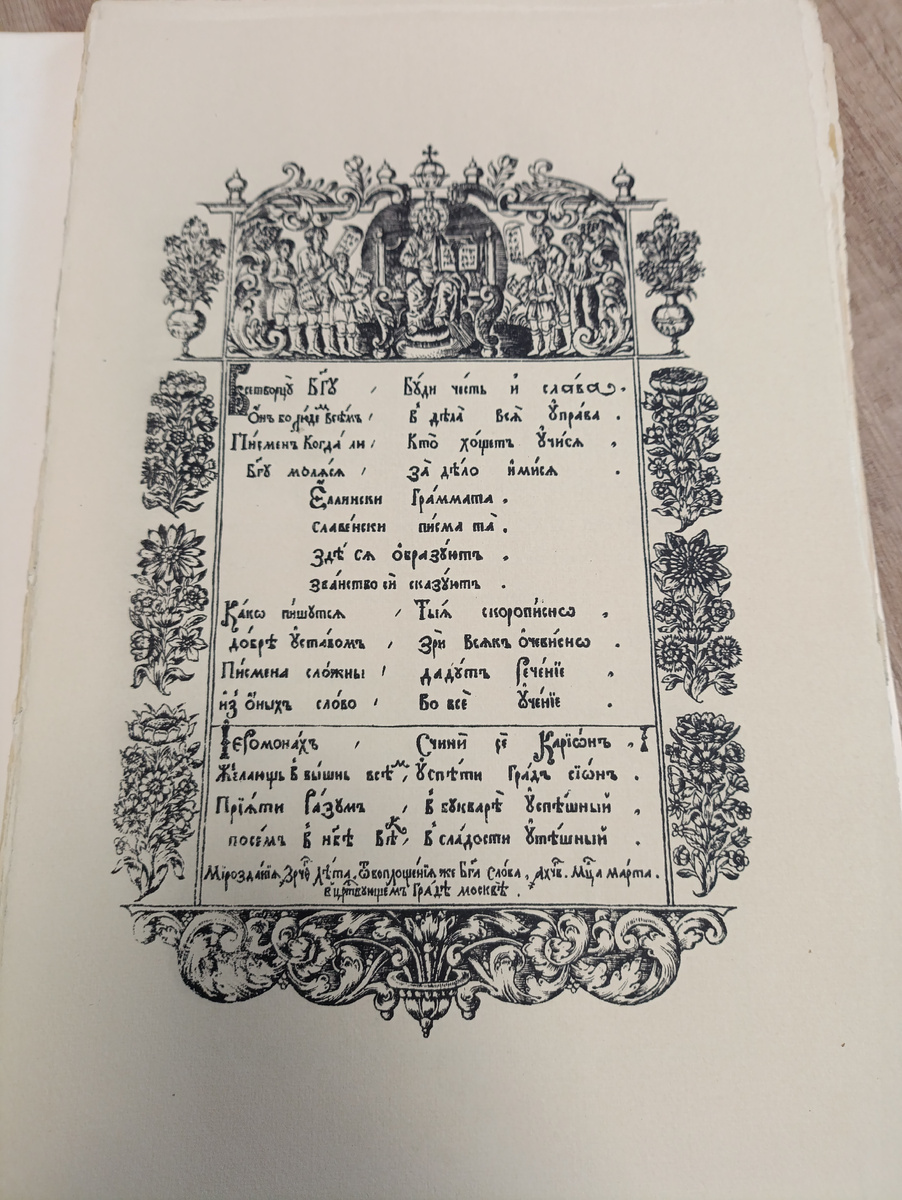 Всетворцꙋ̀ Бг҃ꙋ , Бꙋ́ди че́сть и҆ сла́ва .
Ѻ҆́нъ бо всѣ́мъ , в̾ дѣ́ла всѧ̑ ᲂу҆пра́ва .
Пи́сменъ когда́ ли , Кто̀ хо́щетъ ᲂу҆чи́сѧ ,
Бг҃ꙋ молѧ́сѧ , за̀ дѣ́ло и҆ми́сѧ .
Е҆́ллински Гра́ммата .
славе́нски пи́сма та̀ .
здѣ́ сѧ ѻ҆бразꙋ́ютъ .
зва́нство е҆й сказꙋ́ютъ .
Ка́кѡ пи́шꙋтсѧ , Ты́ѧ скоропи́снѡ ,
до́брѣ ᲂу҆ста́вомъ , зрѝ всѧ́къ ѻ҆чеви́снѡ .
Пи́смена сло́жны , даду́тъ рече́нїе ,
и҆з̾ ѻ҆́ныхъ сло́во , Бо всѐ ᲂу҆че́нїе .
І҆еромона́хъ , Счинѝ се̑ Карїѡ́нъ ,
Жела́ющь в̾ вы́шнь всѣ́м , ᲂу҆спѣ́ти Гра́дъ сїѡ́нъ .
Прїѧ́ти ра́зꙋмъ , в̾ бꙋкварѣ̀ ᲂу҆спѣ́шный ,
посе́мъ в̾ нб҃ѣ вѣ́к , в̾ сла́дости ᲂу҆тѣ́шный .
Мїрозда́нїѧ , лѣ́та . Ѿвоплоще́нїѧ же Бг҃а сло́ва , ах҃чв . мц҃а ма́рта .
в̾ црⷭ҇твꙋющемъ гра́дѣ москвѣ̀ .